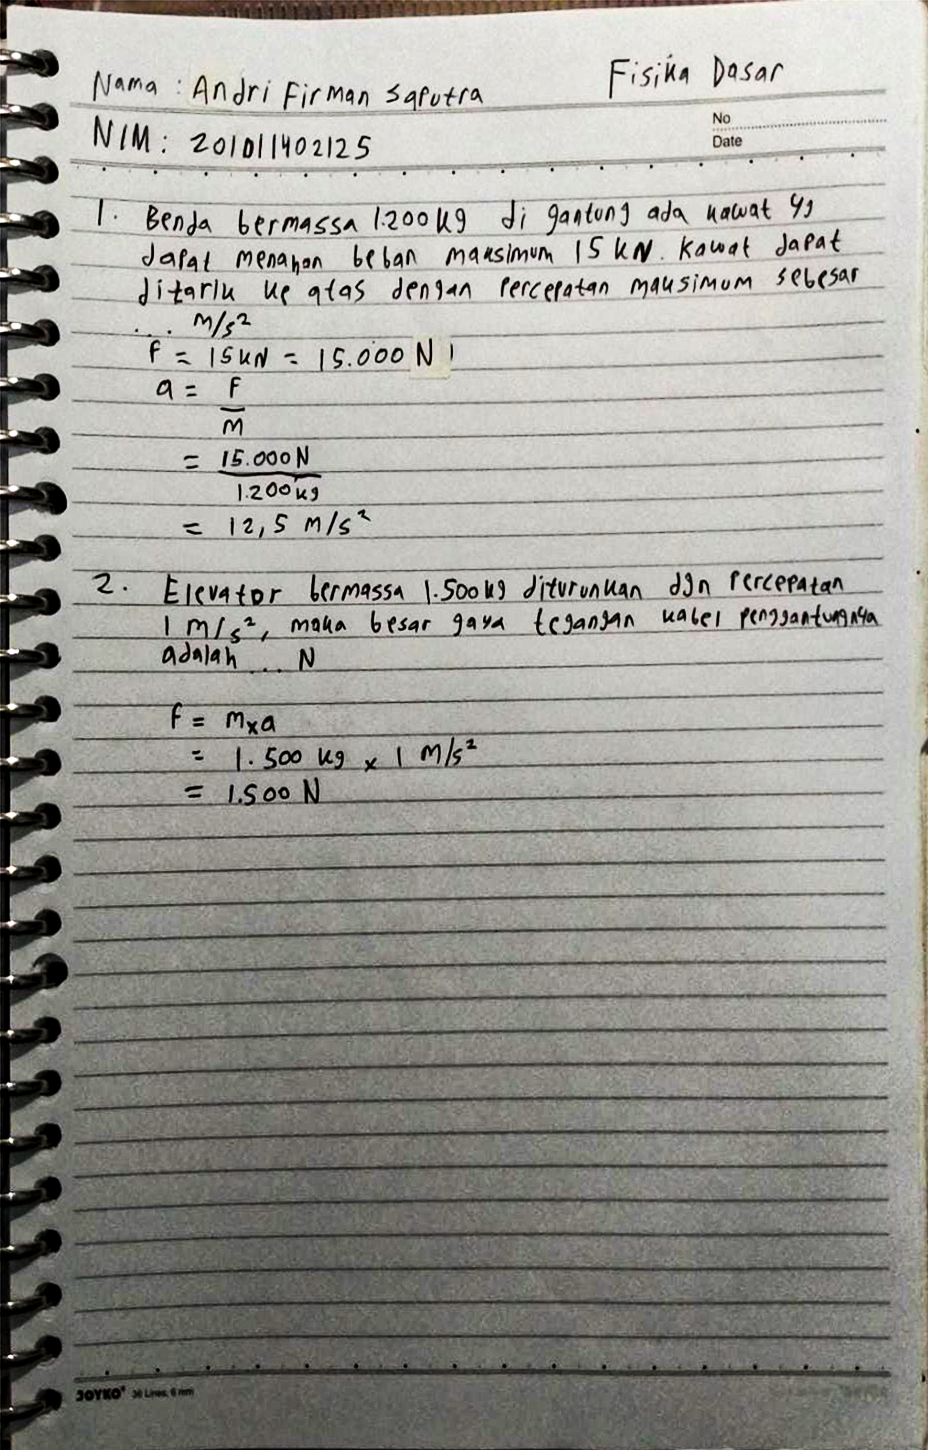 Nama : Andri Firman Saputra
Fisika Dasar
NIM : 201011402125
No
Date
1. Benda bermassa 1.200 kg di gantung ada kawat yg
dapat menahan beban maksimum 15 kN. Kawat dapat
ditarik ke atas dengan percepatan maksimum sebesar
... m/s²
F = 15 kN = 15.000 N
a = F
m
= 15.000 N
1.200 kg
= 12,5 m/s²
2. Elevator bermassa 1.500 kg diturunkan dgn percepatan
1 m/s², maka besar gaya tegangan kabel penggantungnya
adalah ... N
F = m x a
= 1.500 kg x 1 m/s²
= 1.500 N
JOYKO 36 Lines, 6 mm